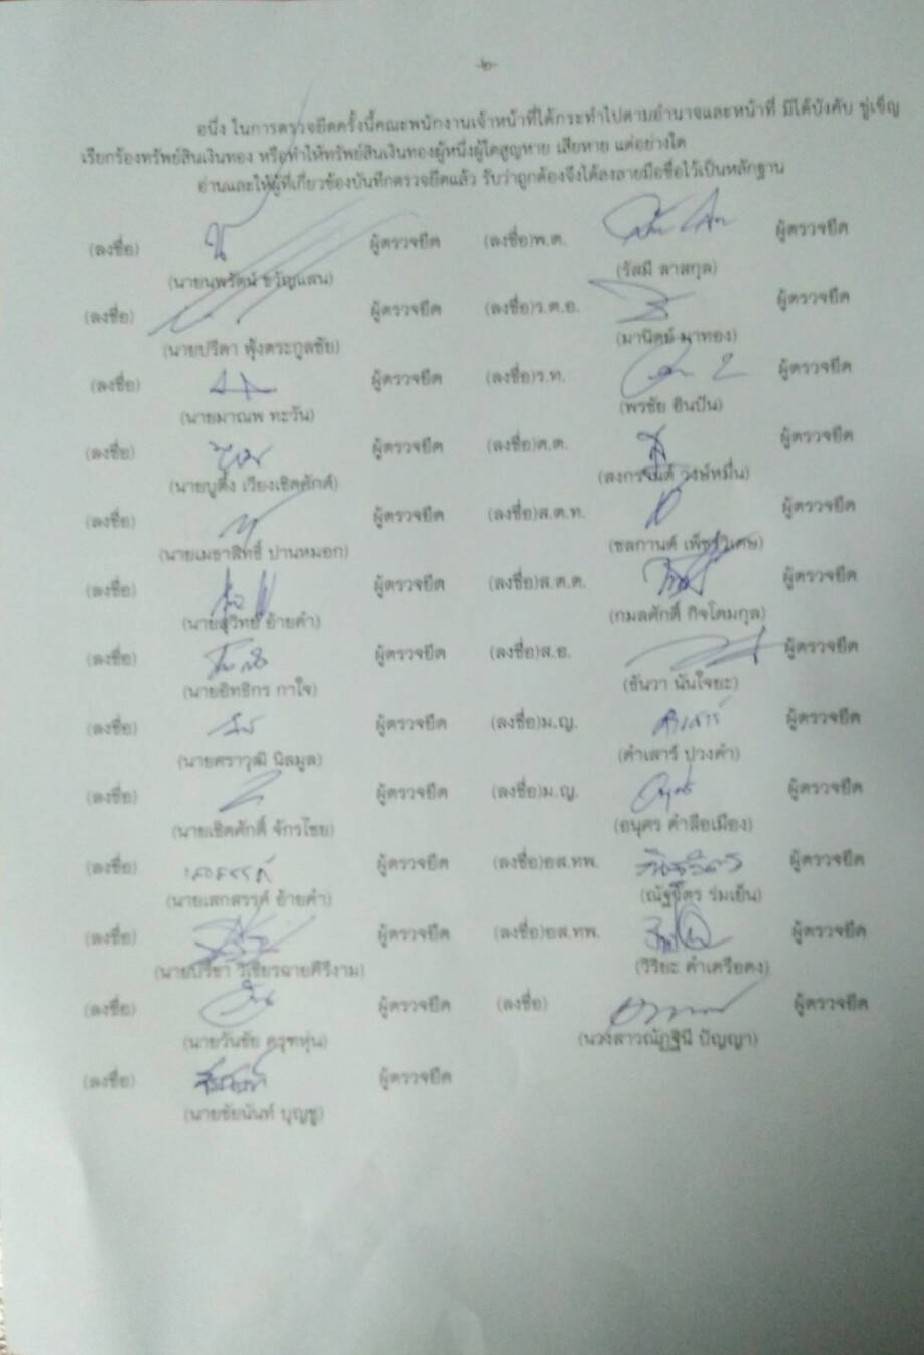 -๒-
อนึ่ง ในการตรวจยึดครั้งนี้คณะพนักงานเจ้าหน้าที่ได้กระทำไปตามอำนาจและหน้าที่ มิได้บังคับ ขู่เข็ญ
เรียกร้องทรัพย์สินเงินทอง หรือทำให้ทรัพย์สินเงินทองผู้หนึ่งผู้ใดสูญหาย เสียหาย แต่อย่างใด
อ่านและให้ผู้ที่เกี่ยวข้องบันทึกตรวจยึดแล้ว รับว่าถูกต้องจึงได้ลงลายมือชื่อไว้เป็นหลักฐาน
(ลงชื่อ) ผู้ตรวจยึด (ลงชื่อ)พ.ต. ผู้ตรวจยึด
(นายนพรัตน์ ขวัญแสน) (รัสมี ลาสกุล)
(ลงชื่อ) ผู้ตรวจยึด (ลงชื่อ)ร.ต.อ. ผู้ตรวจยึด
(นายปรีดา ฟุ้งตระกูลชัย) (มานิตย์ มาทอง)
(ลงชื่อ) ผู้ตรวจยึด (ลงชื่อ)ร.ท. ผู้ตรวจยึด
(นายมาณพ ทะวัน) (พรชัย อินปัน)
(ลงชื่อ) ผู้ตรวจยึด (ลงชื่อ)ด.ต. ผู้ตรวจยึด
(นายบูติ๊ง เวียงเชิดศักดิ์) (สงกรานต์ วงษ์หมื่น)
(ลงชื่อ) ผู้ตรวจยึด (ลงชื่อ)ส.ต.ท. ผู้ตรวจยึด
(นายเมธาสิทธิ์ ปานหมอก) (ชลกานต์ เพ็ชรวิเศษ)
(ลงชื่อ) ผู้ตรวจยึด (ลงชื่อ)ส.ต.ต. ผู้ตรวจยึด
(นายสุวิทย์ อ้ายคำ) (กมลศักดิ์ กิจโคมกุล)
(ลงชื่อ) ผู้ตรวจยึด (ลงชื่อ)ส.อ. ผู้ตรวจยึด
(นายอิทธิกร กาใจ) (ธันวา นันใจยะ)
(ลงชื่อ) ผู้ตรวจยึด (ลงชื่อ)ม.ญ. คำเสาร์ ผู้ตรวจยึด
(นายศราวุฒิ นิลมูล) (คำเสาร์ ปวงคำ)
(ลงชื่อ) ผู้ตรวจยึด (ลงชื่อ)ม.ญ. ผู้ตรวจยึด
(นายเชิดศักดิ์ จักรไชย) (อนุศร คำลือเมือง)
(ลงชื่อ) ผู้ตรวจยึด (ลงชื่อ)อส.ทพ. ผู้ตรวจยึด
(นายเสกสรรค์ อ้ายคำ) (ณัฐจิตร ร่มเย็น)
(ลงชื่อ) ผู้ตรวจยึด (ลงชื่อ)อส.ทพ. ผู้ตรวจยึด
(นายปรีชา วิเชียรฉายศิริงาม) (วิริยะ คำเครือคง)
(ลงชื่อ) ผู้ตรวจยึด (ลงชื่อ) ผู้ตรวจยึด
(นายวันชัย ครุฑหุ่น) (นางสาวณัฏฐินี ปัญญา)
(ลงชื่อ) ผู้ตรวจยึด
(นายชัยนันท์ บุญชู)